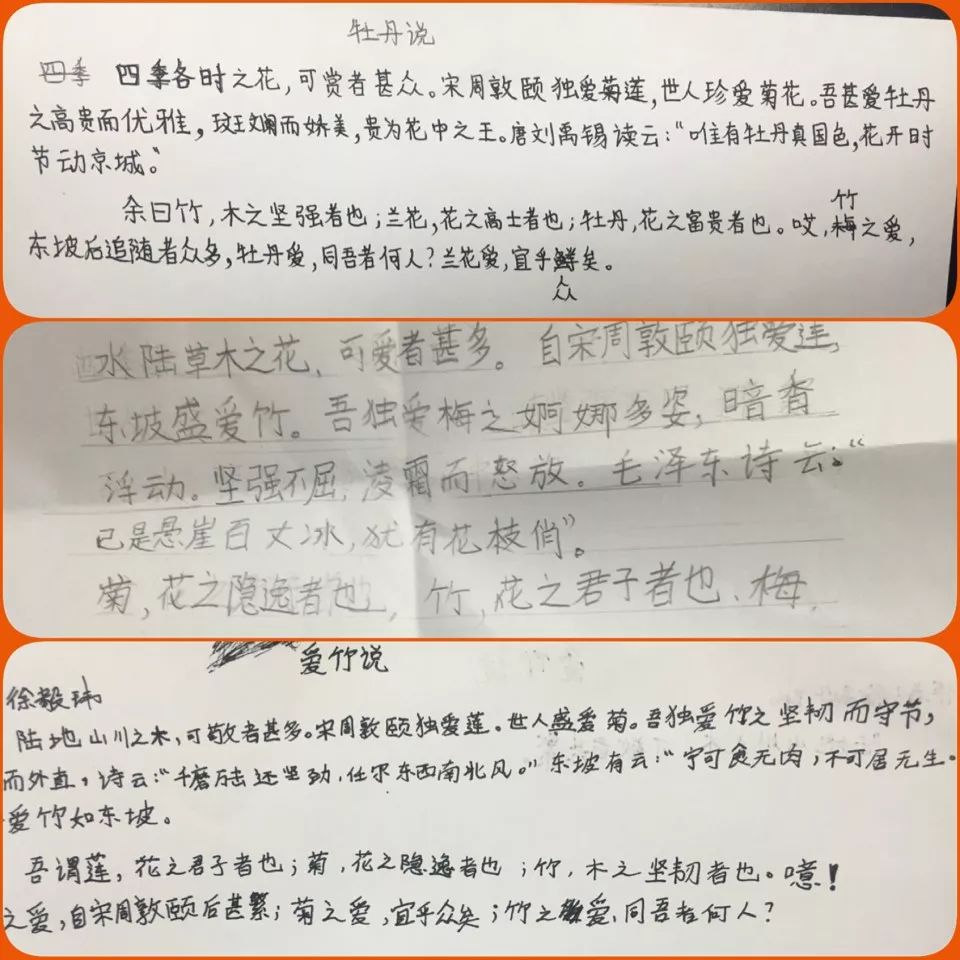 牡丹说
四季 四季各时之花，可赏者甚众。宋周敦颐独爱菊莲，世人珍爱菊花。吾甚爱牡丹
之高贵而优雅，斑斓而娇美，贵为花中之王。唐刘禹锡读云：“唯有牡丹真国色，花开时
节动京城。”
余曰竹，木之坚强者也；兰花，花之高士者也；牡丹，花之富贵者也。哎，梅之爱，
竹
东坡后追随者众多，牡丹爱，同吾者何人？兰花爱，宜乎鲜矣。
众
水陆草木之花，可爱者甚多。自宋周敦颐独爱莲，
东坡盛爱竹。吾独爱梅之婀娜多姿，暗香
浮动。坚强不屈，凌霜而怒放。毛泽东诗云：“
已是悬崖百丈冰，犹有花枝俏”。
菊，花之隐逸者也，竹，花之君子者也、梅，
爱竹说
徐毅玮
陆地山川之木，可敬者甚多。宋周敦颐独爱莲。世人盛爱菊。吾独爱竹之坚韧而守节，
而外直，诗云：“千磨万击还坚劲，任尔东西南北风。”东坡有云：“宁可食无肉，不可居无生。
爱竹如东坡。
吾谓莲，花之君子者也；菊，花之隐逸者也；竹，木之坚韧者也。噫！
之爱，自宋周敦颐后甚繁；菊之爱，宜乎众矣；竹之爱，同吾者何人？